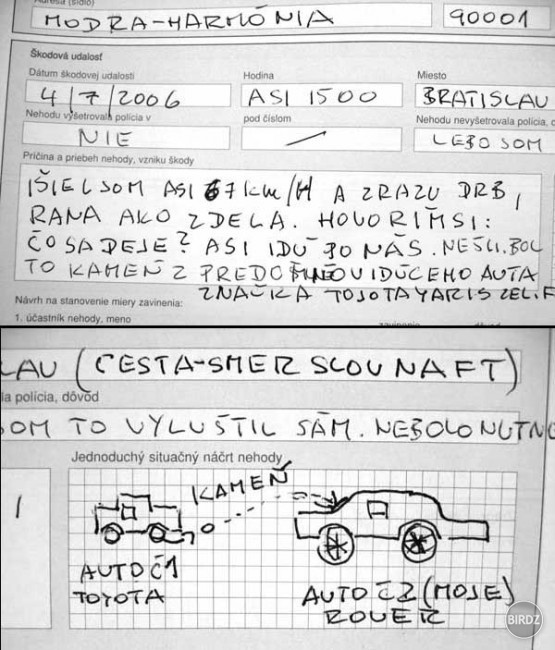 Adresa (sídlo)
MODRA-HARMÓNIA 90001
Škodová udalosť
Dátum škodovej udalosti Hodina Miesto
4/7/2006 ASI 1500 BRATISLAV
Nehodu vyšetrovala polícia v pod číslom Nehodu nevyšetrovala polícia, d
NIE LEBO SOM
Príčina a priebeh nehody, vzniku škody
IŠIEL SOM ASI 67 km/H A ZRAZU DRB,
RANA AKO Z DELA. HOVORÍM SI:
ČO SA DEJE? ASI IDÚ PO NÁS. NEŠLI. BOL
TO KAMEŇ Z PREDO MNOU IDÚCEHO AUTA
ZNAČKA TOJOTA YARIS ZEL. F
Návrh na stanovenie miery zavinenia:
1. účastník nehody, meno
LAV (CESTA-SMER SLOVNAFT)
la polícia, dôvod
SOM TO VYLUŠTIL SÁM. NEBOLO NUTNO
Jednoduchý situačný náčrt nehody
KAMEŇ
AUTO Č1
TOYOTA
AUTO Č2 (MOJE)
ROVER
BIRDZ